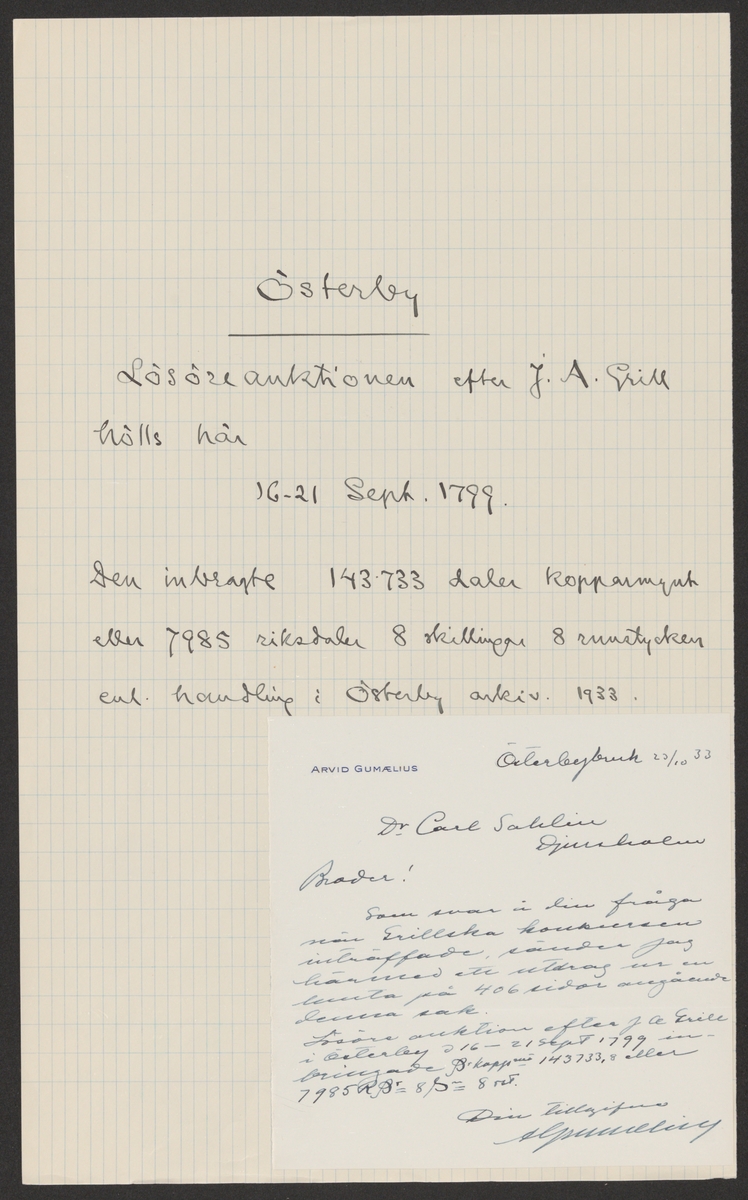 Österby
Lösöreauktionen efter J. A. Grill
hölls här
16-21 Sept. 1799.
Den inbragte 143.733 daler kopparmynt
eller 7985 riksdaler 8 skillingar 8 runstycken
enl. handling i Österby arkiv. 1933.
ARVID GUMÆLIUS
Österbybruk 23/10 33
Dr Carl Sahlin
Djursholm
Broder!
Som svar å din fråga
när Grillska konkursen
inträffade, sänder jag
härmed ett utdrag ur en
lunta på 406 sidor angående
denna sak.
Lösöre auktion efter J A Grill
i Österby d 16 - 21 Sept 1799 in-
bringade Dr koppmt 143733,8 eller
7985 R Dr 8 S 8 rst.
Din tillgifne
AGumælius